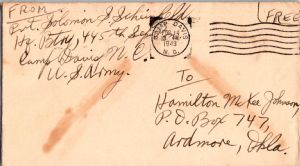 FROM
Pvt. Solomon S. Schi
Hq. Btry, 445th Se
Camp Davis N.C.
U.S. Army.
CAMP DAVIS
1943
N.C.
FREE
To
Hamilton McKee Johnson,
P.O. Box 747,
Ardmore, Okla.